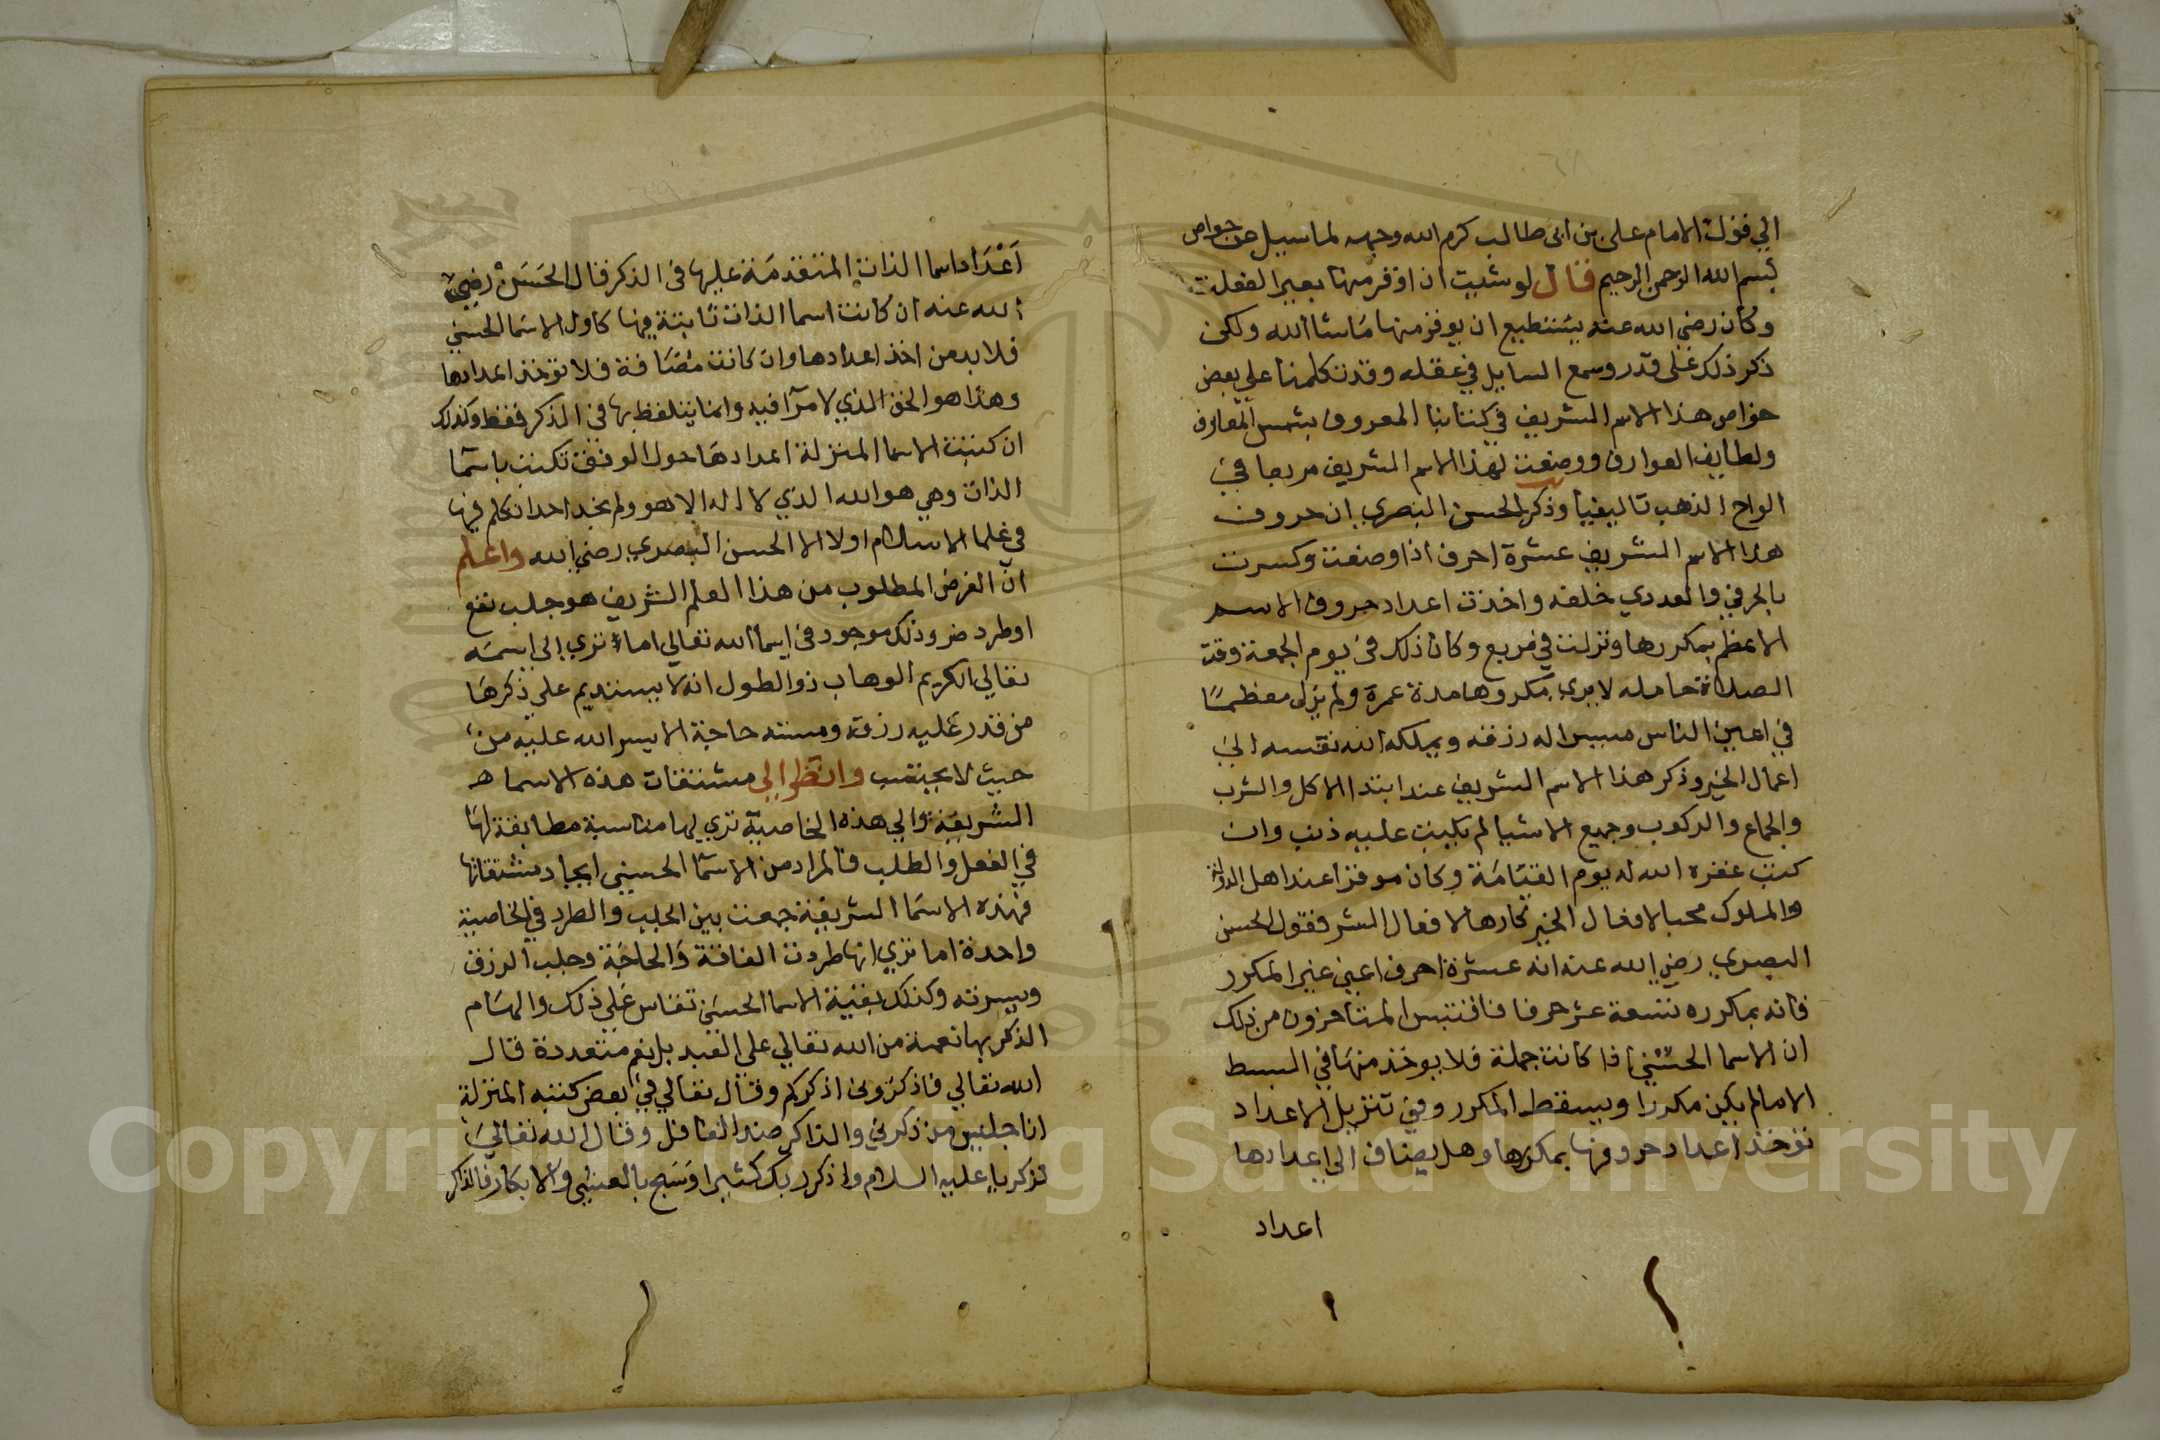 الي قول الامام علي بن ابي طالب كرم الله وجهه لما سيل عن خواص
بسم الله الرحمن الرحيم فقال لو شيت ان اوقر منها بعيرا لفعلت
وكان رضي الله عنه يستطيع ان يوقر منها ماشا الله ولكن
ذكر ذلك علي قدر وسع السايل في عقله وقد تكلمنا علي بعض
خواص هذا الاسم الشريف في كتابنا المعروف بشمس المعارف
ولطايف العوارف ووضعت لهذا الاسم الشريف مربعا في
الواح الذهب تاليفيا وذكر الحسن البصري ان حروف
هذا الاسم الشريف عشرة احرف اذا وضعت وكسرت
بالحرفي والعددي خلفه واخذت اعداد حروف الاسم
الاعظم بمكررها ونزلت في مربع وكان ذلك في يوم الجمعة وقت
الصلاة حامله لا يري مكروها مدة عمره ولم يزل معظما
في اعين الناس ميسرا له رزقه ويملكه الله نفسه الي
اعمال الخير وذكر هذا الاسم الشريف عند ابتدا الاكل والشرب
والجماع والركوب وجميع الاشيا لم يكتب عليه ذنب وان
كتب غفره الله له يوم القيامة وكان موقرا عند اهل الدولة
والملوك محبا لافعال الخير كارها لافعال الشر فقول الحسن
البصري رضي الله عنه انه عشرة احرف اعني غير المكرر
فانه بمكرره تسعة عشر حرفا فاقتبس المتاخرون من ذلك
ان الاسما الحسني اذا كانت جملة فلا يوخذ منها في البسط
الا ما لم يكن مكررا ويسقط المكرر وفي تنزيل الاعداد
توخذ اعداد حروفها بمكررها وهل يضاف الي اعدادها
اعداد
اعداد اسما الذات المتقدمة عليها في الذكر فقال الحسن رضي
الله عنه ان كانت اسما الذات ثابتة فيها كاول الاسما الحسني
فلا بد من اخذ اعدادها وان كانت مضافة فلا توخذ اعدادها
وهذا هو الحق الذي لا مرآ فيه وانما يتلفظ بها في الذكر فقط وكذلك
ان كتبت الاسما المنزلة اعدادها حول الوفق تكتب باسما
الذات وهي هو الله الذي لا اله الا هو ولم نجد احدا تكلم فيها
في علما الاسلام اولا الا الحسن البصري رضي الله واعلم
ان الغرض المطلوب من هذا العلم الشريف هو جلب نفع
او طرد ضر وذلك موجود في اسما الله تعالي اما تري الي اسمه
تعالي الكريم الوهاب ذو الطول انه لا يستديم علي ذكرها
من قدر عليه رزقه ومسته حاجة الا يسر الله عليه من
حيث لا يحتسب وانظر الي مشتقات هذه الاسما
الشريفة والي هذه الخاصية تري لها مناسبة مطابقة لها
في الفعل والطلب فالمراد من الاسما الحسني ايجاد مشتقاتها
فهذه الاسما الشريفة جمعت بين الجلب والطرد في الخاصية
واحدة اما تري انها طردت الفاقة والحاجة وجلب الرزق
ويسرته وكذلك بقية الاسما الحسني تقاس علي ذلك والهام
الذكر بها نعمة من الله تعالي علي العبد بل نعم متعددة قال
الله تعالي فاذكروني اذكركم وقال تعالي في بعض كتبه المنزلة
انا جليس من ذكرني والذاكر ضد الغافل وقال الله تعالي
لزكريا عليه السلام واذكر ربك كثيرا وسبح بالعشي والابكار فالذاكر